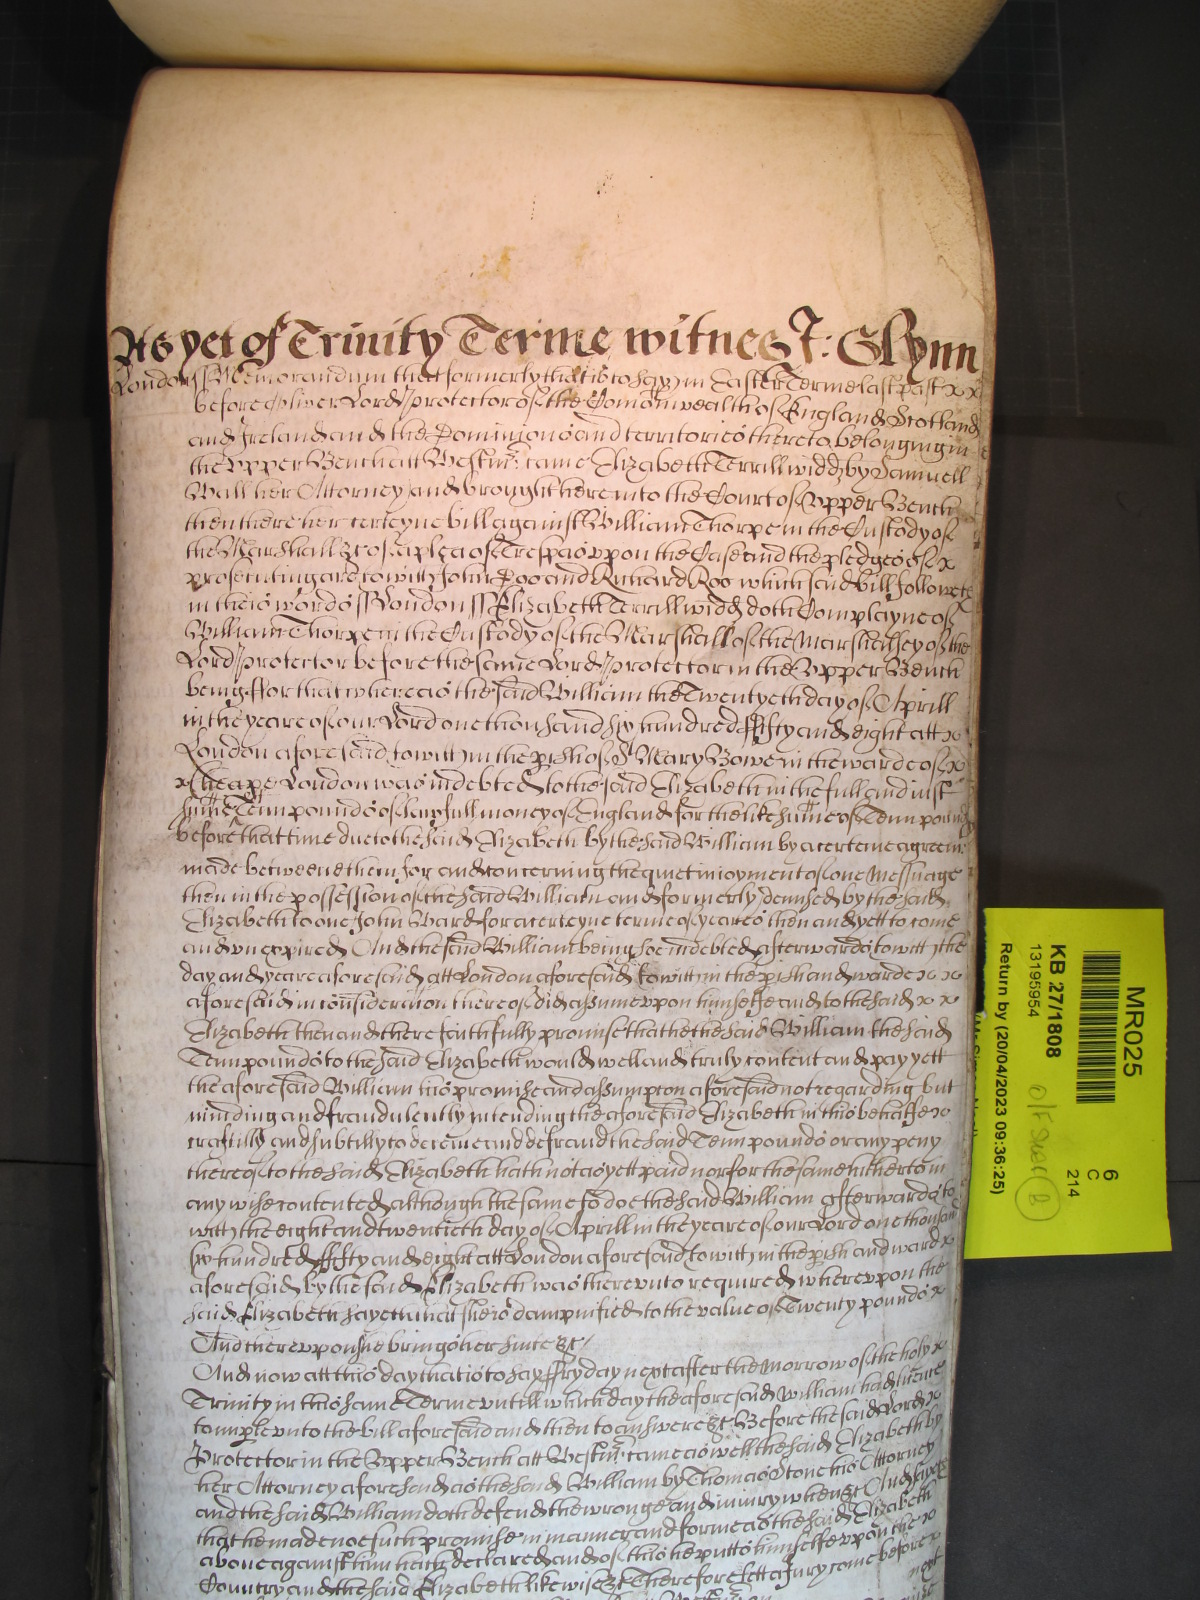 As yet of Trinity Terme witnes J: Glynn
London ss Memorandum that formerly that is to say in Easter Terme last past x x
before Oliver Lord Protector of the Comonwealth of England Scotland
and Ireland and the Dominions and territories thereto belonging in
the Upper Bench att Westmr: came Elizabeth Terrill widd by Samuell
Ball her Attorney and brought here into the Court of Upper Bench
then there her certeyne bill against William Thorpe in the Custody of
the Marshall &c of a plea of Trespas uppon the Case and the pledges of x
prosecuting are to witt John Doo and Richard Roo which said bill followeth
in theis words ss London ss Elizabeth Terrill widd doth Complayne of
William Thorpe in the Custody of the Marshall of the Marshalsey of the
Lord Protector before the same Lord Protector in the Upper Bench
being ffor that whereas the said William the Twentyeth day of Aprill
in the yeare of our Lord one thousand six hundred ffifty and eight att x
London aforesaid to witt in the pish of St Mary Bowe in the warde of x
x Cheape London was indebted to the said Elizabeth in the full and iust
summe Tenn pounds of lawfull money of England for the like summe of Tenn pounds
before that time due to the said Elizabeth by the said William by a certeine agreemt
made betweene them for and concerning the quiet inioyment of one Messuage
then in the possession of the said William and formerly demised by the said
Elizabeth to one John Ward for a certeyne terme of yeares then and yett to come
and unexpired And the said William being soe indebted afterwards to witt the
day and yeare aforesaid att London aforesaid to witt in the pish and warde x x
aforesaid in consideracion thereof did assume uppon himselfe and to the said x x
Elizabeth then and there faithfully promise that he the said William the said
Tenn pounds to the said Elizabeth would well and truly content and pay yett
the aforesaid William his promise and assumpton aforesaid not regarding but
minding and fraudulently intending the aforesaid Elizabeth in this behalfe x
craftilly and subtilly to deceive and defraud the said Tenn pounds or any peny
thereof to the said Elizabeth hath not as yett paid nor for the same hitherto in
any wise contented although the same so to doe the said William afterwards to
witt the eight and twentieth day of Aprill in the yeare of our Lord one thousand
six hundred ffifty and eight att London aforesaid to witt in the pish and ward x
aforesaid by the said Elizabeth was thereunto required whereupon the
said Elizabeth sayeth that shee is dampnified to the value of Twenty pounds x
And thereuppon she brings her suite &c
And now att this day that is to say ffryday next after the Morrow of the holy x
Trinity in this same Terme untill which day the aforesaid William had licence
to imple unto the bill aforesaid and then to answere &c Before the said Lord x
Protector in the Upper Bench att Westmr: came as well the said Elizabeth by
her Attorney aforesaid as the said William by Thomas Stone his Attorney
and the said William doth defend the wronge and iniury when &c And sayes
that he made noe such promise in manner and forme as the said Elizabeth
above against him hath declared and of this he putts himselfe uppon the x
Country and the said Elizabeth likewise &c Therefore lett a Jury come before x
next
MR025
KB 27/1808
13195954
Return by (20/04/2023 09:36:25)
6
C
214
B